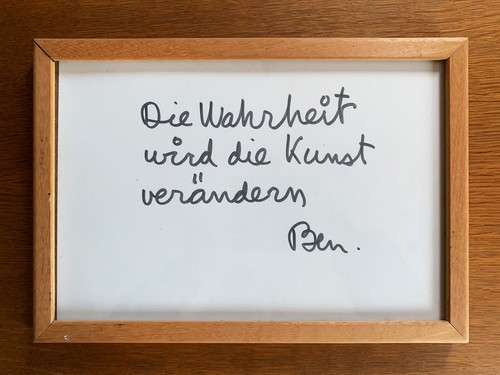 Die Wahrheit
wird die Kunst
verändern
Ben.